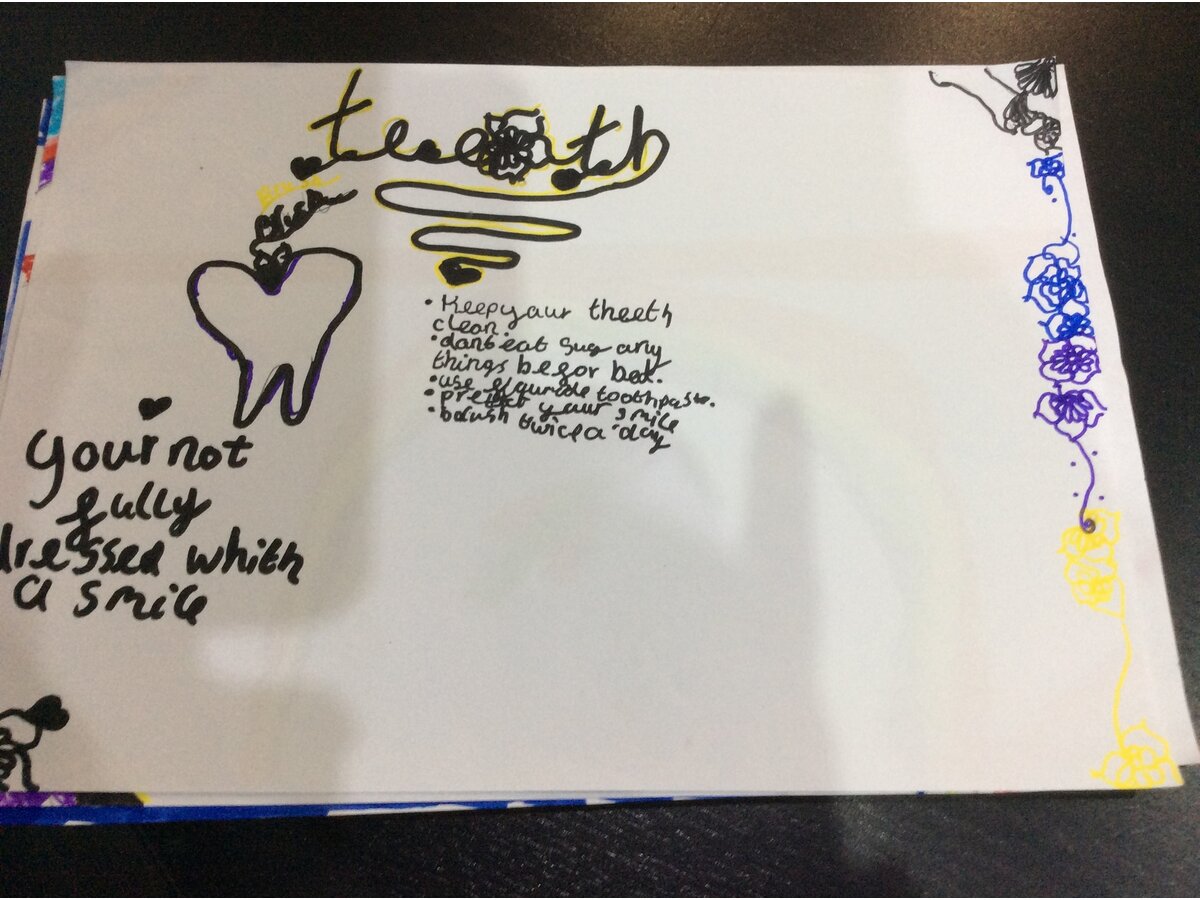 teeath
• Keep your theeth
clean.
• dont eat sug any
things befor bed.
• use toothpaste.
• your smile
• brush twice a day
your not
fully
dressed whith
a smile